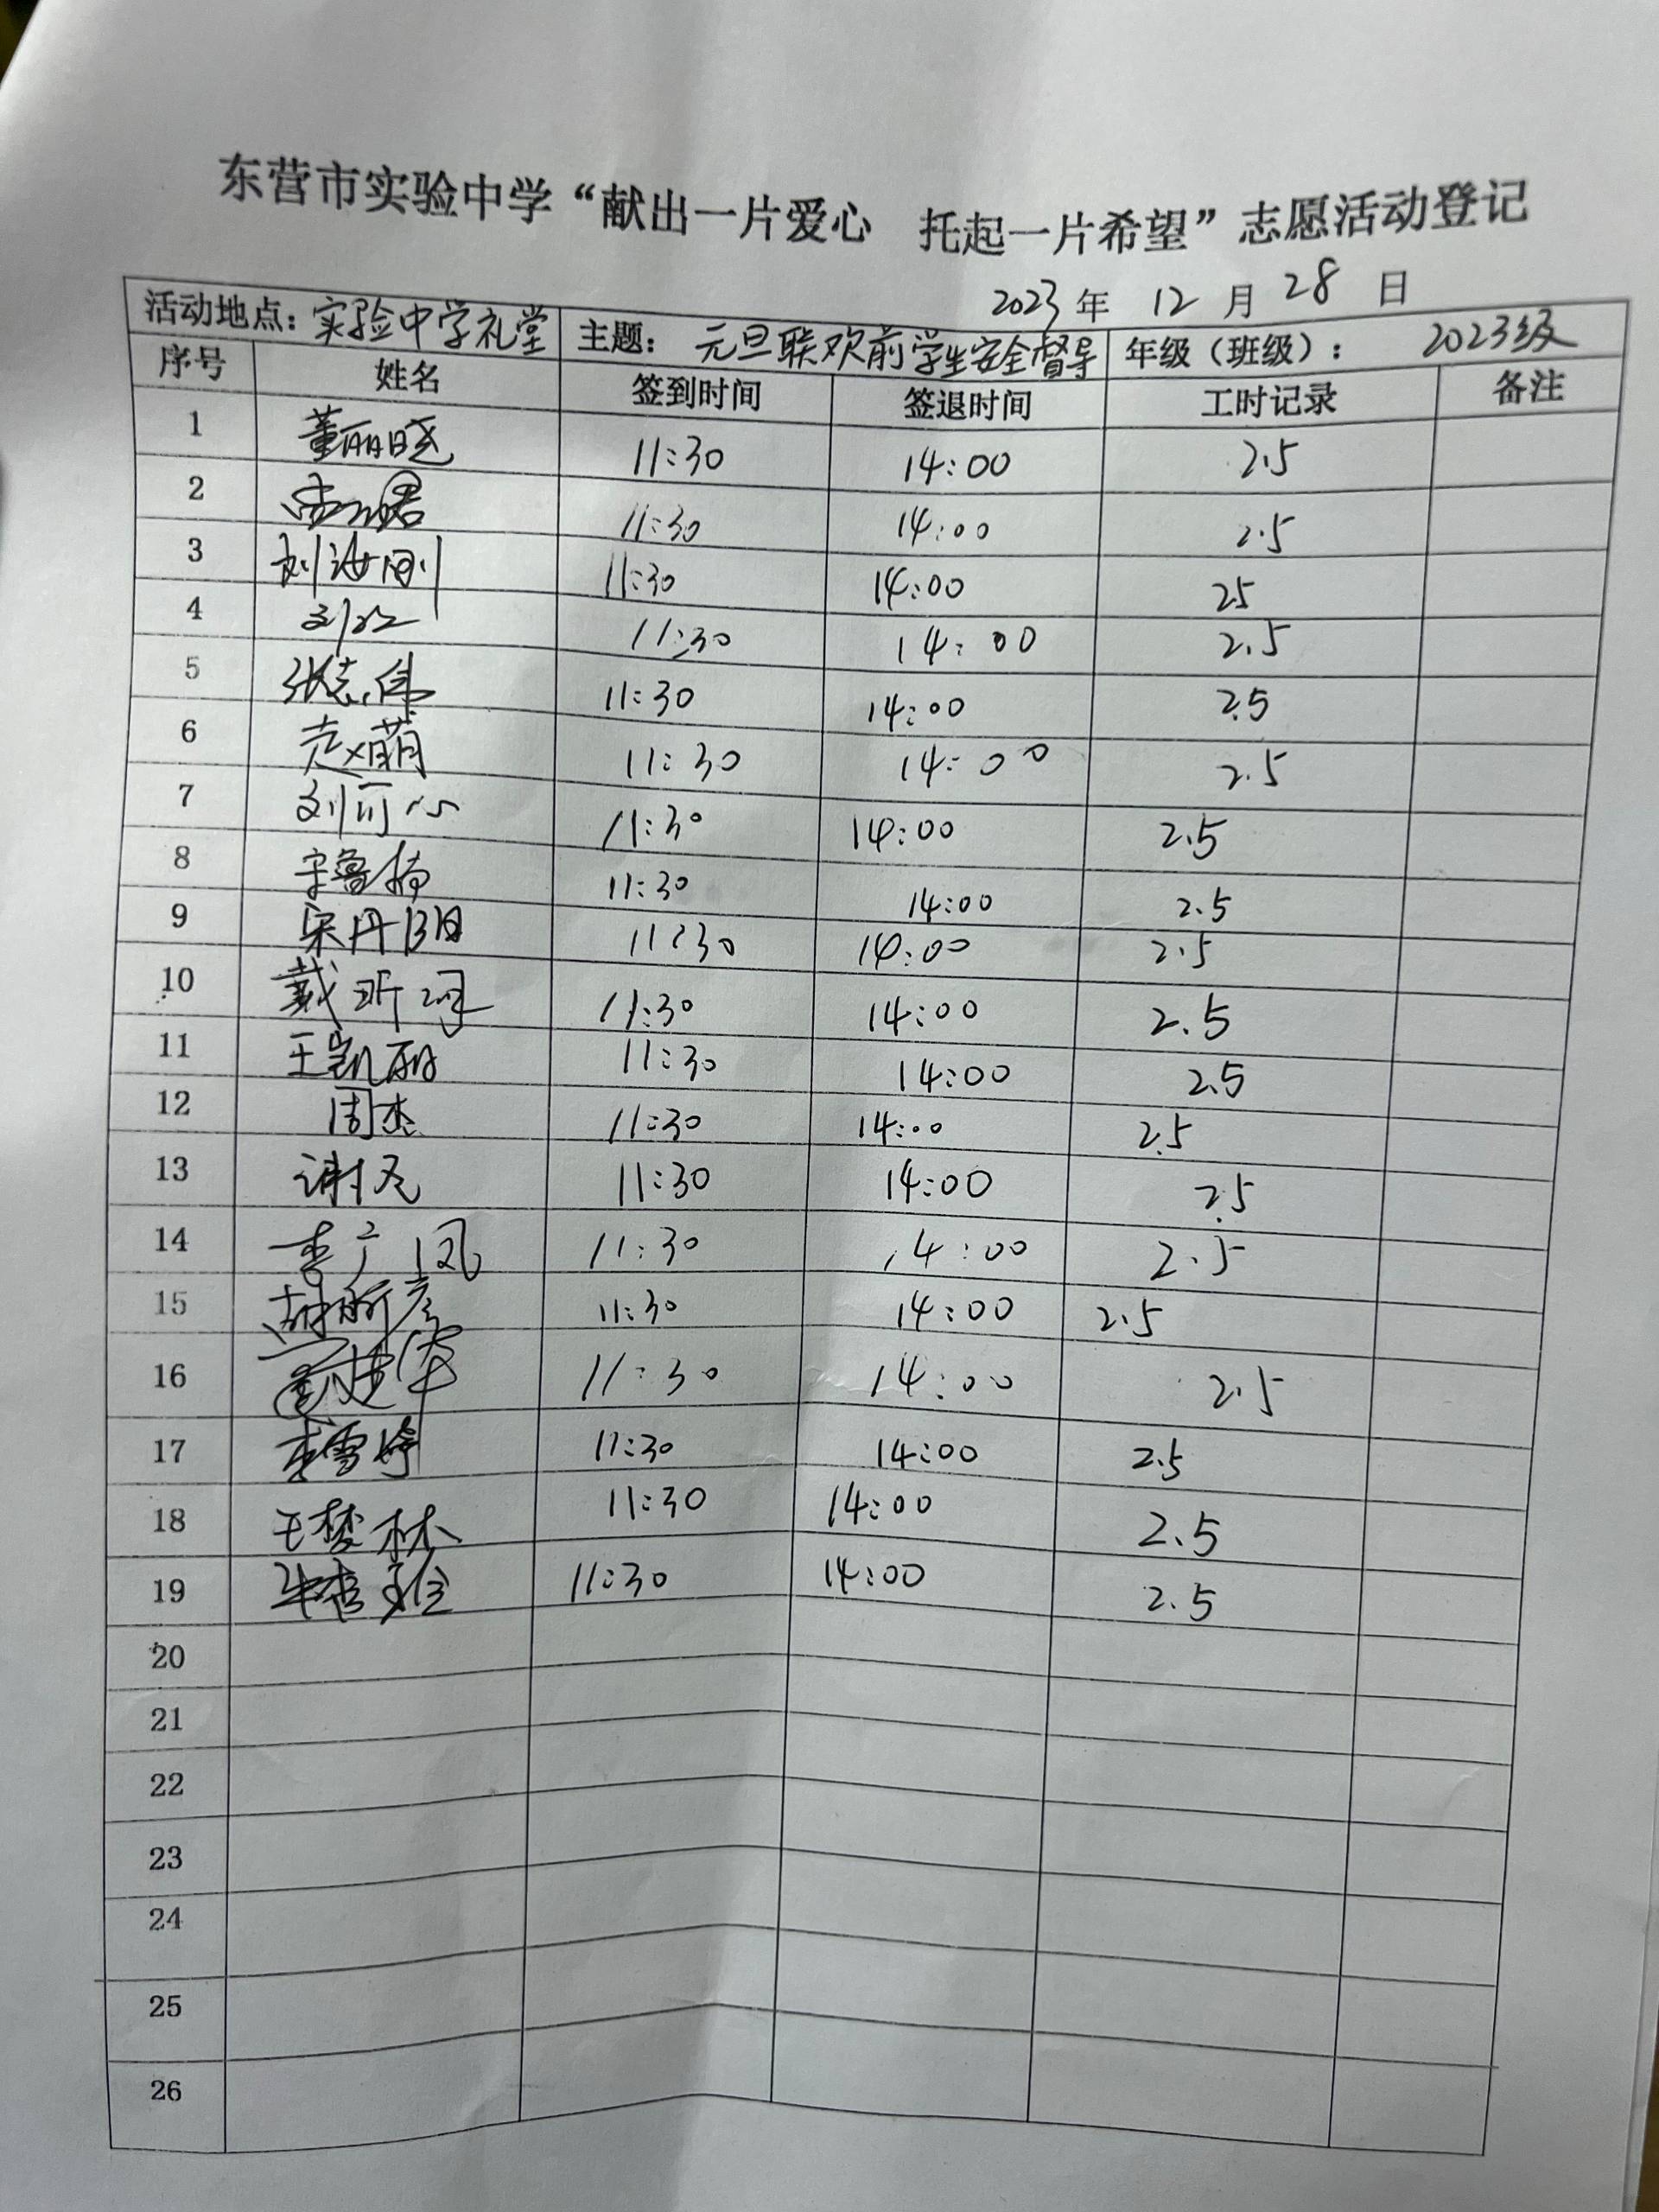 东营市实验中学“献出一片爱心 托起一片希望”志愿活动登记
2023年 12月28日
活动地点：实验中学礼堂 主题： 元旦联欢前学生安全督导 年级（班级）： 2023级
序号 姓名 签到时间 签退时间 工时记录 备注
1 董丽晓 11:30 14:00 2.5
2 11:30 14:00 2.5
3 刘海刚 11:30 14:00 25
4 11:30 14:00 2.5
5 张志伟 11:30 14:00 2.5
6 赵萌 11:30 14:00 2.5
7 刘可心 11:30 14:00 2.5
8 11:30 14:00 2.5
9 宋丹阳 11:30 14:00 2.5
10 戴昕 11:30 14:00 2.5
11 王凯丽 11:30 14:00 2.5
12 周杰 11:30 14:00 2.5
13 11:30 14:00 2.5
14 李广凤 11:30 14:00 2.5
15 胡新彦 11:30 14:00 2.5
16 11:30 14:00 2.5
17 李雪婷 11:30 14:00 2.5
18 王梦林 11:30 14:00 2.5
19 11:30 14:00 2.5
20
21
22
23
24
25
26